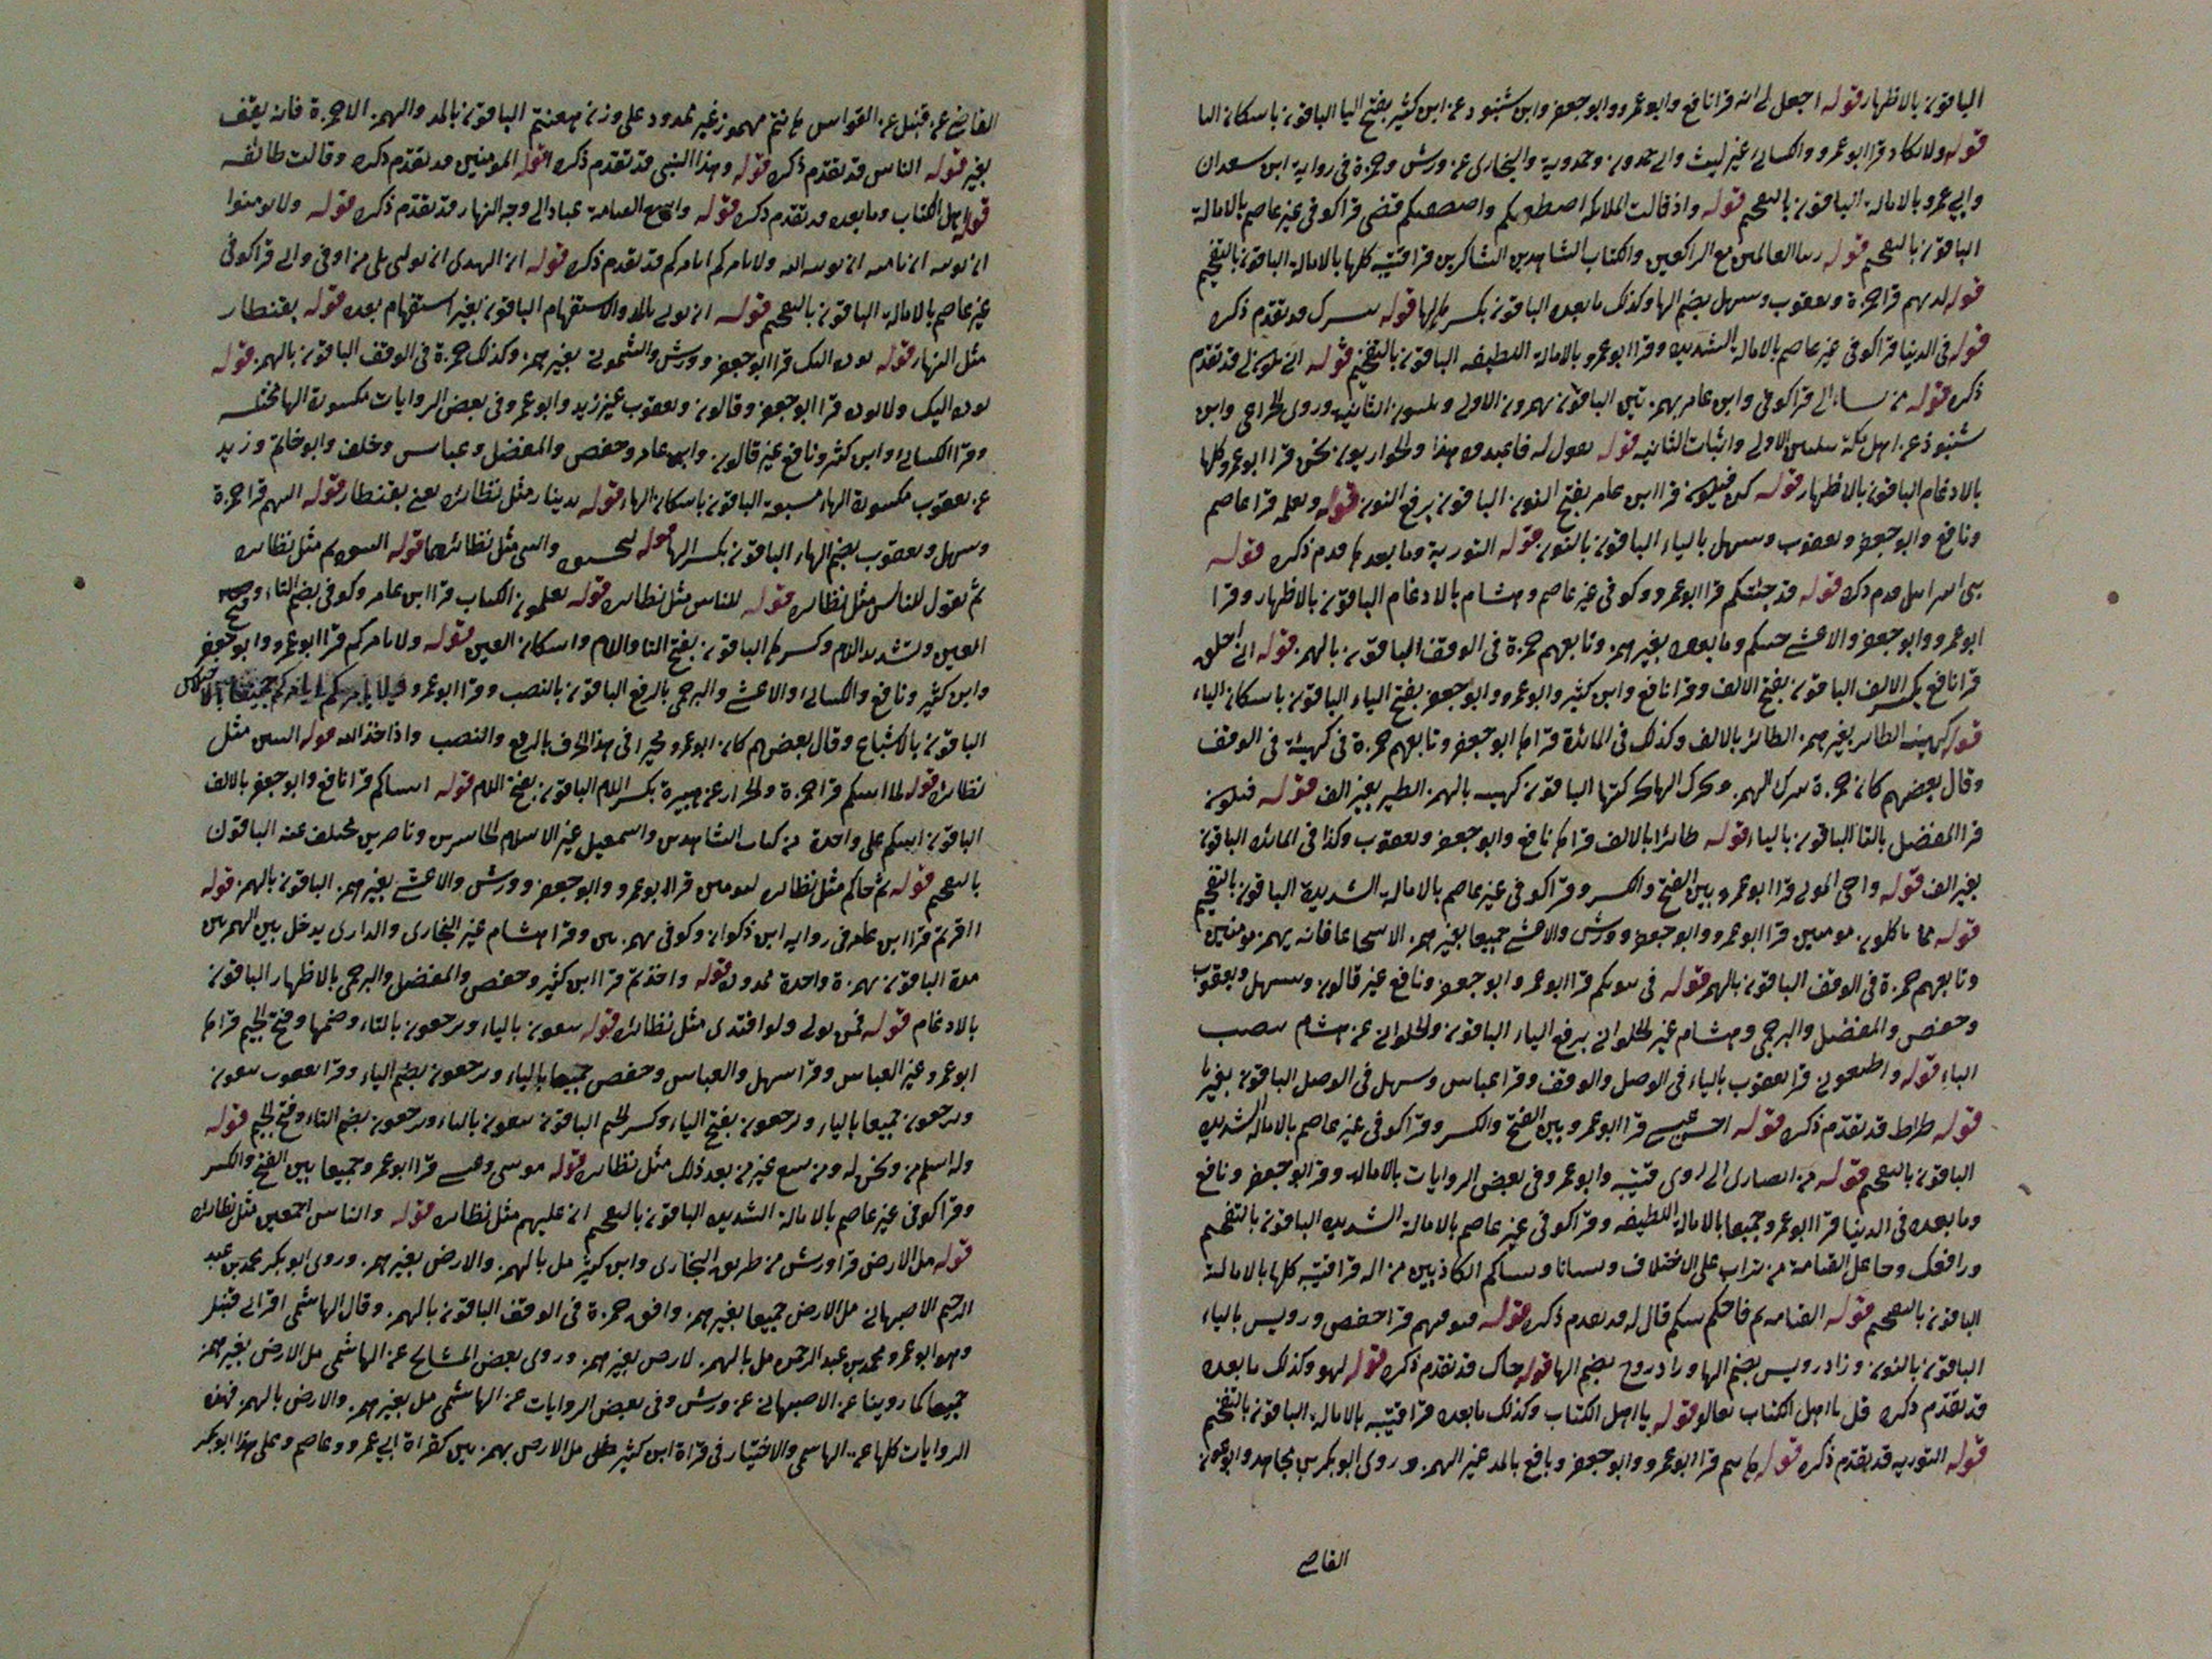 الباقون بالاظهار قوله اجعل لي اية قرا نافع وابو عمرو وابو جعفر وابن شنبوذ عن ابن كثير بفتح اليا الباقون باسكان اليا
قوله والابكار قرا ابو عمرو والكسائي غير ليث وابن حمدون وحمدوية والبخاري عن ورش وحمزة في رواية ابن سعدان
وابي عمرو بالامالة الباقون بالتفخيم قوله واذ قالت الملائكة اصطفيك واصطفيكم قضى قرا كوفي غير عاصم بالامالة
الباقون بالتفخيم قوله رب العالمين مع الراكعين والكتاب الشاهدين الشاكرين قرا قتيبة كلها بالامالة الباقون بالتفخيم
قوله لديهم قرا حمزة ويعقوب وسهل بضم الها وكذلك ما بعده الباقون بكسر الها قوله يبشرك قد تقدم ذكره
قوله في الدنيا قرا كوفي غير عاصم بالامالة الشديدة وقرا ابو عمرو بالامالة اللطيفة الباقون بالتفخيم قوله اني يكون لي قد تقدم
ذكره قوله من يشاء الي قرا كوفي وابن عامر بهمزتين الباقون يهمزون الاولي ويلينون الثانية وروي الخزاعي وابن
شنبوذ عن اهل مكة بتليين الاولي واثبات الثانية قوله يقول له فاعبدوه هذا والحواريون نحن قرا ابو عمرو كلها
بالادغام الباقون بالاظهار قوله كن فيكون قرا ابن عامر بفتح النون الباقون برفع النون قوله ويعلمه قرا عاصم
ونافع وابو جعفر ويعقوب وسهل بالياء الباقون بالنون قوله التورية وما بعدها قدم ذكره قوله
بني اسرايل قدم ذكره قوله قد جئتكم قرا ابو عمرو وكوفي غير عاصم وهشام بالادغام الباقون بالاظهار وقرا
ابو عمرو وابو جعفر والاعشي جيتكم وما بعده بغير همز وتابعهم حمزة في الوقف الباقون بالهمز قوله اني اخلق
قرا نافع بكسر الالف الباقون بفتح الالف وقرا نافع وابن كثير وابو عمرو وابو جعفر بفتح الياء الباقون باسكان الياء
قوله كهيئة الطاير بغير همز الطائر بالالف وكذلك في المائدة قراها ابو جعفر وتابعهم حمزة في كهيئة في الوقف
وقال بعضهم كان حمزة يترك الهمز ويحرك الها بحركتها الباقون كهيئة بالهمز الطير بغير الف قوله فيكون
قرا المفضل بالتا الباقون بالياء قوله طائرا بالالف قراها نافع وابو جعفر ويعقوب وكذا في المائدة الباقون
بغير الف قوله واحي الموتى قرا ابو عمرو بين الفتح والكسر وقرا كوفي غير عاصم بالامالة الشديدة الباقون بالتفخيم
قوله بما تاكلون مومنين قرا ابو عمرو وابو جعفر وورش والاعشي جميعا بغير همز الا شجاعا فانه يهمز مومنين
وتابعهم حمزة في الوقف الباقون بالهمز قوله في بيوتكم قرا ابو عمرو وابو جعفر ونافع غير قالون وسهل ويعقوب
وحفص والمفضل والبرجمي وهشام غير الحلواني برفع الباء الباقون والحلواني عن هشام بنصب
الباء قوله واطيعون قرا يعقوب بالياء في الوصل والوقف وقرا عباس وسهل في الوصل الباقون بغير يا
قوله صراط قد تقدم ذكره قوله احس عيسي قرا ابو عمرو بين الفتح والكسر وقرا كوفي غير عاصم بالامالة الشديدة
الباقون بالتفخيم قوله من انصاري الي روي قتيبة وابو عمرو في بعض الروايات بالامالة وقرا ابو جعفر ونافع
وما بعده في الدنيا قرا ابو عمرو جميعا بالامالة اللطيفة وقرا كوفي غير عاصم بالامالة الشديدة الباقون بالتفخيم
ورافعك وجاعل القيامة من تراب علي الاختلاف ونسانا ونساكم الكاذبين من اله قرا قتيبة كلها بالامالة
الباقون بالتفخيم قوله القيامة ثم فاحكم بينكم قال له قد تقدم ذكره قوله فيوفيهم قرا حفص ورويس بالياء
الباقون بالنون وزاد رويس بضم الها وزاد روح بضم الها قوله جاك قد تقدم ذكره قوله لهو وكذلك ما بعده
قد تقدم ذكره قل يا اهل الكتاب تعالو قوله يا اهل الكتاب وكذلك ما بعده قرا قتيبة بالامالة الباقون بالتفخيم
قوله التورية قد تقدم ذكره قوله هانتم قرا ابو عمرو وابو جعفر ونافع بالمد غير الهمز وروي ابو بكر بن مجاهد وابو عون
القاضي
القاضي عن قنبل عن القواس هانتم مهموز غير ممدود علي وزن هعنتم الباقون بالمد والهمز الا حمزة فانه يقف
بغير قوله الناس قد تقدم ذكره قوله وهذا النبي قد تقدم ذكره قوله المومنين قد تقدم ذكره وقالت طائفة
قوله اهل الكتاب وما بعده قد تقدم ذكره قوله واسع القيامة عباد الي وجه النهار قد تقدم ذكره قوله ولا تومنوا
ان يوتيه ان تامنه ان يوتيه الله ولا يامركم ايامركم قد تقدم ذكره قوله ان الهدي ان يوتي بلي من اوفي والي قرا كوفي
غير عاصم بالامالة الباقون بالتفخيم قوله ان يوتي بالمد والاستفهام الباقون بغير استفهام بعده قوله بقنطار
مثل النهار قوله يوده اليك قرا ابو جعفر وورش والشموني بغير همز وكذلك حمزة في الوقف الباقون بالهمز قوله
يوده اليك ولا يوده قرا ابو جعفر وقالون ويعقوب غير زيد وابو عمرو في بعض الروايات مكسورة الها مختلسة
وقرا الكسائي وابن كثير ونافع غير قالون وابن عامر وحفص والمفضل وعباس وخلف وابو حاتم وزيد
عن يعقوب مكسورة الهاء مشبعة الباقون باسكان الهاء قوله بدينار مثل نظائره يعني بقنطار قوله اليهم قرا حمزة
وسهل ويعقوب بضم الهاء الباقون بكسر الها قوله لتحسبوه والنبي مثل نظائرهما قوله النبوة ثم مثل نظائره
ثم يقول للناس مثل نظائره قوله للناس مثل نظائره قوله تعلمون الكتاب قرا ابن عامر وكوفي بضم التاء وفتح
العين وتشديد اللام وكسرها الباقون بفتح التا واللام واسكان العين قوله ولا يامركم قرا ابو عمرو وابو جعفر
وابن كثير ونافع والكسائي والاعشي والبرجمي بالرفع الباقون بالنصب وقرا ابو عمرو ولا يامركم ايامركم جميعا بالاختلاس
الباقون بالاشباع وقال بعضهم كان ابو عمرو مخيرا في هذا الحرف بالرفع والنصب واذ اخذ الله قوله النبيين مثل
نظائره قوله لما اتيتكم قرا حمزة والخزاز عن هبيرة بكسر اللام الباقون بفتح اللام قوله اتيناكم قرا نافع وابو جعفر بالالف
الباقون اتيتكم علي واحدة من كتاب الشاهدين واسمعيل غير الاسلام الخاسرين وناصرين مختلف عنه الباقون
بالتفخيم قوله ثم جاكم مثل نظائره لتومنن قرا ابو عمرو وابو جعفر وورش والاعشي بغير همز الباقون بالهمز قوله
ااقررتم قرا ابن عامر في رواية ابن ذكوان وكوفي بهمزتين وقرا هشام غير البخاري والداري يدخل بين الهمزتين
مدة الباقون بهمزة واحدة ممدودة قوله واخذتم قرا ابن كثير وحفص والمفضل والبرجمي بالاظهار الباقون
بالادغام قوله فمن تولي ولو افتدي مثل نظائره قوله يبغون بالياء وترجعون بالتاء وضمها وفتح الجيم قراها
ابو عمرو غير العباس وقرا سهل والعباس وحفص جميعا بالياء ويرجعون بضم الياء وقرا يعقوب يبغون
ويرجعون جميعا بالياء ويرجعون بفتح الياء وكسر الجيم الباقون تبغون بالتاء وترجعون بضم التاء وفتح الجيم قوله
وله اسلم من ونحن له ومن يبتغ غير من بعد ذلك مثل نظائره قوله موسي وعيسي قرا ابو عمرو جميعا بين الفتح والكسر
وقرا كوفي غير عاصم بالامالة الشديدة الباقون بالتفخيم ان عليهم مثل نظائره قوله والناس اجمعين مثل نظائره
قوله مل الارض قرا ورش من طريق البخاري وابن كثير مل بالهمز والارض بغير همز وروي ابو بكر محمد بن عبد
الرحيم الاصبهاني مل الارض جميعا بغير همز وافق حمزة في الوقف الباقون بالهمز وقال الهاشمي اقراني قنبل
وهو ابو عمرو محمد بن عبد الرحمن مل بالهمز لارض بغير همز وروي بعض المشايخ عن الهاشمي مل الارض بغير همز
جميعا كما روينا عن الاصبهاني عن ورش وفي بعض الروايات عن الهاشمي مل بغير همز والارض بالهمز فهذه
الروايات كلها عن الهاشمي والاختيار في قراة ابن كثير مل الارض بهمزتين كقراة ابي عمرو وعاصم وعلي هذا ابو بكر